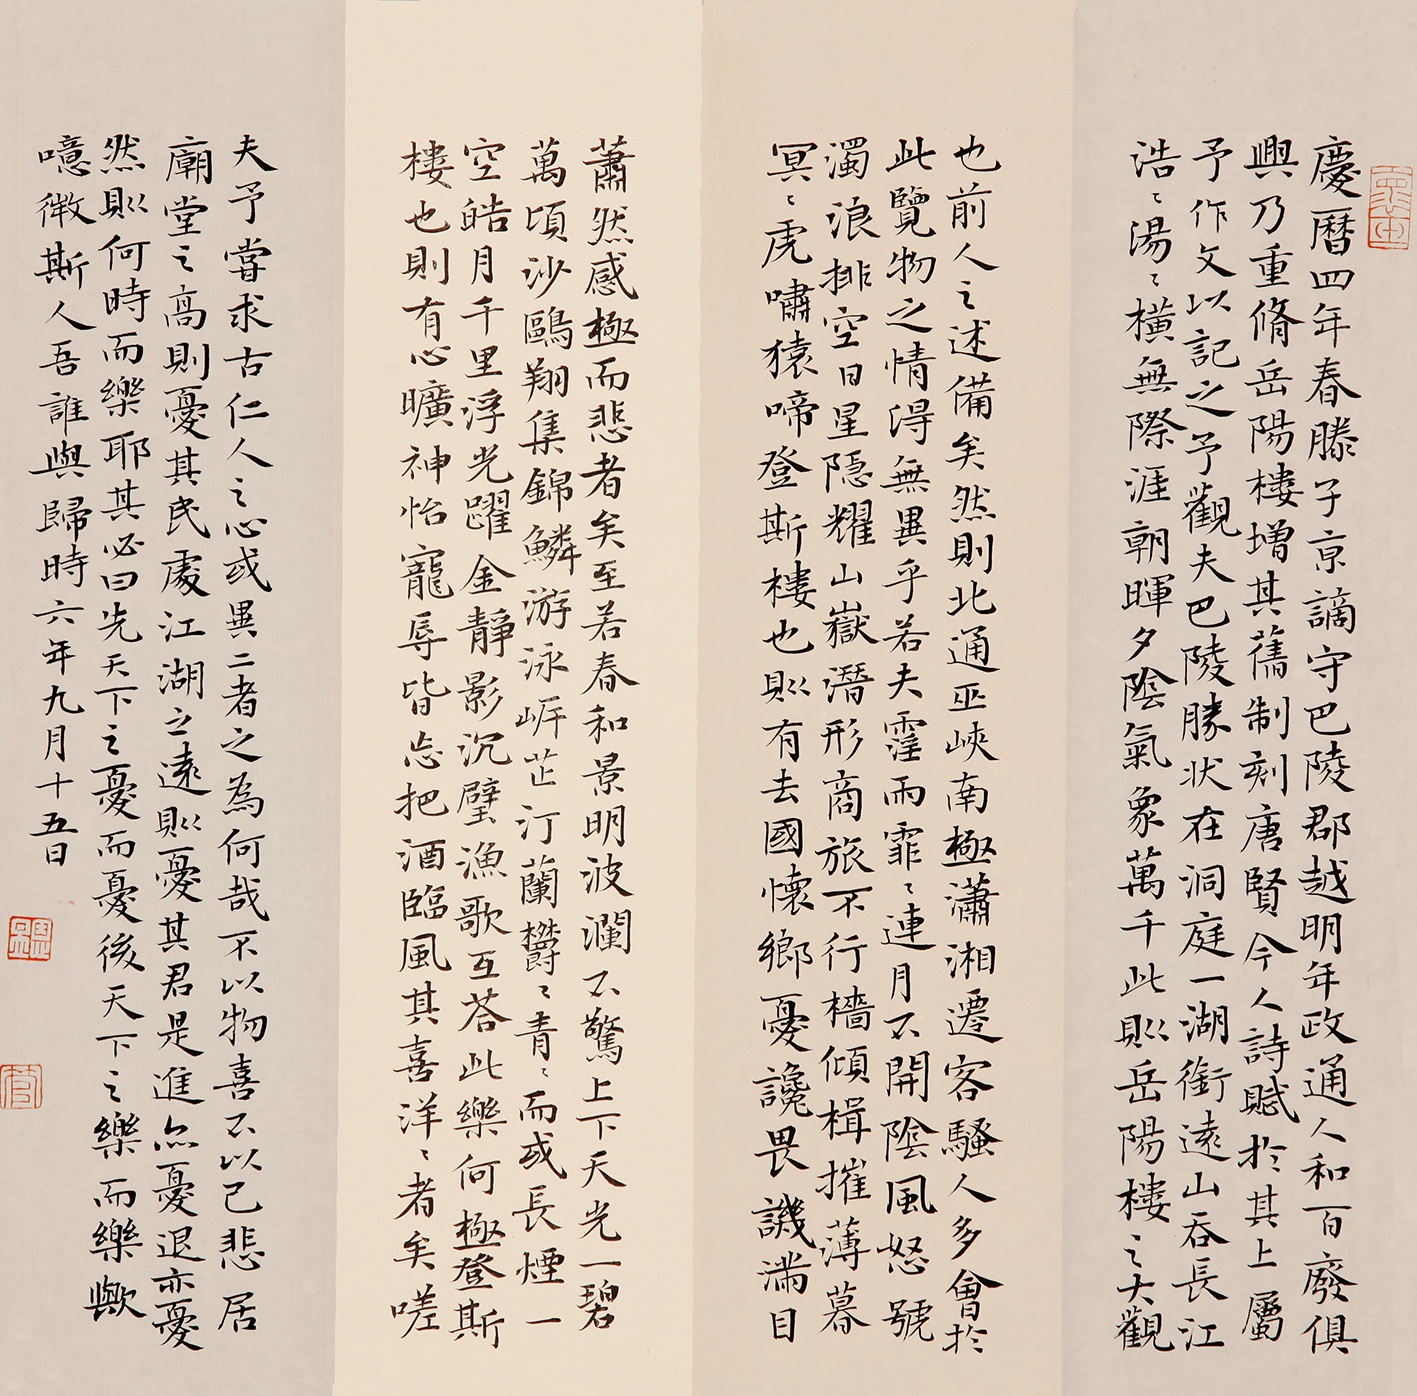 慶曆四年春滕子京謫守巴陵郡越明年政通人和百廢俱
興乃重脩岳陽樓增其舊制刻唐賢今人詩賦於其上屬
予作文以記之予觀夫巴陵勝狀在洞庭一湖銜遠山吞長江
浩〻湯〻橫無際涯朝暉夕陰氣象萬千此則岳陽樓之大觀
也前人之述備矣然則北通巫峽南極瀟湘遷客騷人多會於
此覽物之情得無異乎若夫霪雨霏〻連月不開陰風怒號
濁浪排空日星隱耀山嶽潛形商旅不行檣傾楫摧薄暮
冥〻虎嘯猿啼登斯樓也則有去國懷鄉憂讒畏譏滿目
蕭然感極而悲者矣至若春和景明波瀾不驚上下天光一碧
萬頃沙鷗翔集錦鱗游泳岸芷汀蘭欎〻青〻而或長煙一
空皓月千里浮光躍金靜影沉璧漁歌互荅此樂何極登斯
樓也則有心曠神怡寵辱皆忘把酒臨風其喜洋〻者矣嗟
夫予嘗求古仁人之心或異二者之為何哉不以物喜不以己悲居
廟堂之高則憂其民處江湖之遠則憂其君是進亦憂退亦憂
然則何時而樂耶其必曰先天下之憂而憂後天下之樂而樂歟
噫微斯人吾誰與歸時六年九月十五日